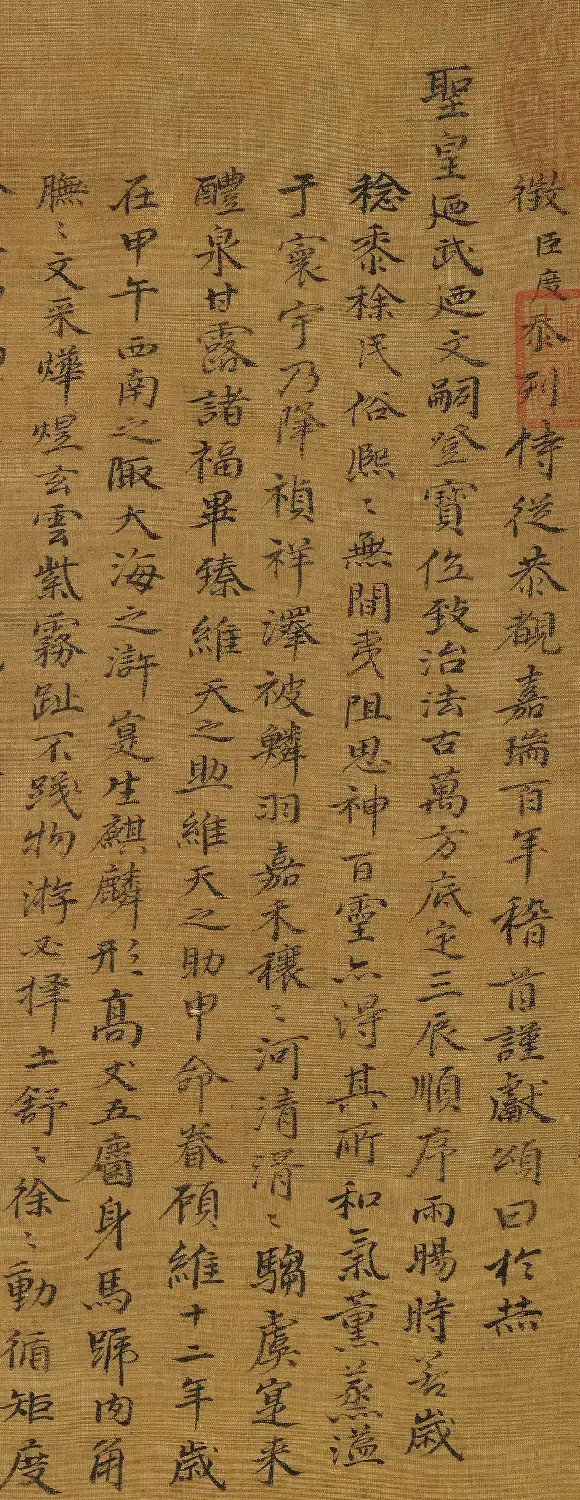 微臣度忝列侍從恭覩嘉瑞百年稽首謹獻頌曰於赫
聖皇廼武廼文嗣登寶位致治法古萬方底定三辰順序雨暘時若歲
稔黍稌民俗熙〻無間夷阻鬼神百靈亦得其所和氣薰蒸溢
于寰宇乃降禎祥澤被鱗羽嘉禾穰〻河清湑〻騶虞寔来
醴泉甘露諸福畢臻維天之助維天之助申命眷顧維十二年歲
在甲午西南之陬大海之滸寔生麒麟形高丈五麕身馬蹄肉角
膴〻文采燁煜玄雲紫霧趾不踐物游必擇土舒〻徐〻動循矩度